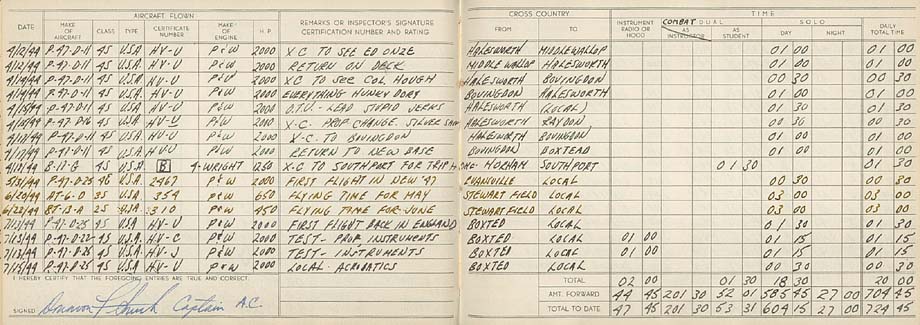 AIRCRAFT FLOWN
DATE MAKE OF AIRCRAFT CLASS TYPE CERTIFICATE NUMBER MAKE OF ENGINE H.P. REMARKS OR INSPECTOR'S SIGNATURE CERTIFICATION NUMBER AND RATING
CROSS COUNTRY TIME
FROM TO INSTRUMENT RADIO OR HOOD COMBAT DUAL AS INSTRUCTOR AS STUDENT SOLO DAY NIGHT DAILY TOTAL TIME
4/12/44 P-47-D-11 4S U.S.A. HV-U P&W 2000 X C TO SEE ED ONZE HALESWORTH MIDDLEWALLOP 01 00 01 00
4/12/44 P-47-D-11 4S U.S.A. HV-U P&W 2000 RETURN ON DECK MIDDLE WALLOP HALESWORTH 01 00 01 00
P-47-D-11 4S U.S.A. HV-U P&W 2000 XC TO SEE COL HOUGH HALESWORTH BOVINGDON 00 30 00 30
P-47-D-11 4S U.S.A. HV-U P&W 2000 EVERYTHING HUNKY DORY BOVINGDON HALESWORTH 01 00 01 00
P-47-D-11 4S U.S.A. HV-U P&W 2000 O.T.U - LEAD STUPID HALESWORTH (LOCAL) 01 30 01 30
U.S.A. HV-U P&W X-C. PROP CHANGE. SILVER HALESWORTH RAYDON 00 30 00 30
P-47-D-11 4S U.S.A. HV-U P&W 2000 X-C TO BOVINGDON HALESWORTH BOVINGDON 01 00 01 00
P-47-D-11 4S U.S.A. HV-U P&W 2000 RETURN TO NEW BASE BOVINGDON BOXTEAD 01 00 01 00
B-17-G 4S U.S.A. B 4-WRIGHT X-C TO SOUTHPORT FOR TRIP HOME - HORHAM SOUTHPORT 01 30 01 30
5/31/44 P-47-D-25 4S U.S.A. 2467 P&W 2000 FIRST FLIGHT IN NEW '47 EVANSVILLE LOCAL 00 30 00 30
6/20/44 AT-6-D U.S.A. 354 P&W 650 FLYING TIME FOR MAY STEWART FIELD LOCAL 03 00 03 00
6/22/44 BT-13-A 2S U.S.A. 310 P&W 450 FLYING TIME FOR JUNE STEWART FIELD LOCAL 03 00 03 00
7/13/44 P-47-D-25 4S U.S.A. HV-U P&W 2000 FIRST FLIGHT BACK IN ENGLAND BOXTED LOCAL 01 30 01 30
7/13/44 P-47-D-22 4S U.S.A. HV-C P&W 2000 TEST - PROP INSTRUMENTS BOXTED LOCAL 01 00 01 15 01 15
7/13/44 P-47-D-25 4S U.S.A. HV-J P&W 2000 TEST - INSTRUMENTS BOXTED LOCAL 01 00 01 15 01 15
7/15/44 P-47-D-25 4S U.S.A. HV-U P&W 2000 LOCAL - ACROBATICS BOXTED LOCAL 00 30 00 30
I HEREBY CERTIFY THAT THE FOREGOING ENTRIES ARE TRUE AND CORRECT.
TOTAL 02 00 01 30 18 30 20 00
AMT. FORWARD 44 45 201 30 52 01 585 45 27 00 704 45
SIGNED Captain A.C.
TOTAL TO DATE 47 45 201 30 53 31 604 15 27 00 724 45